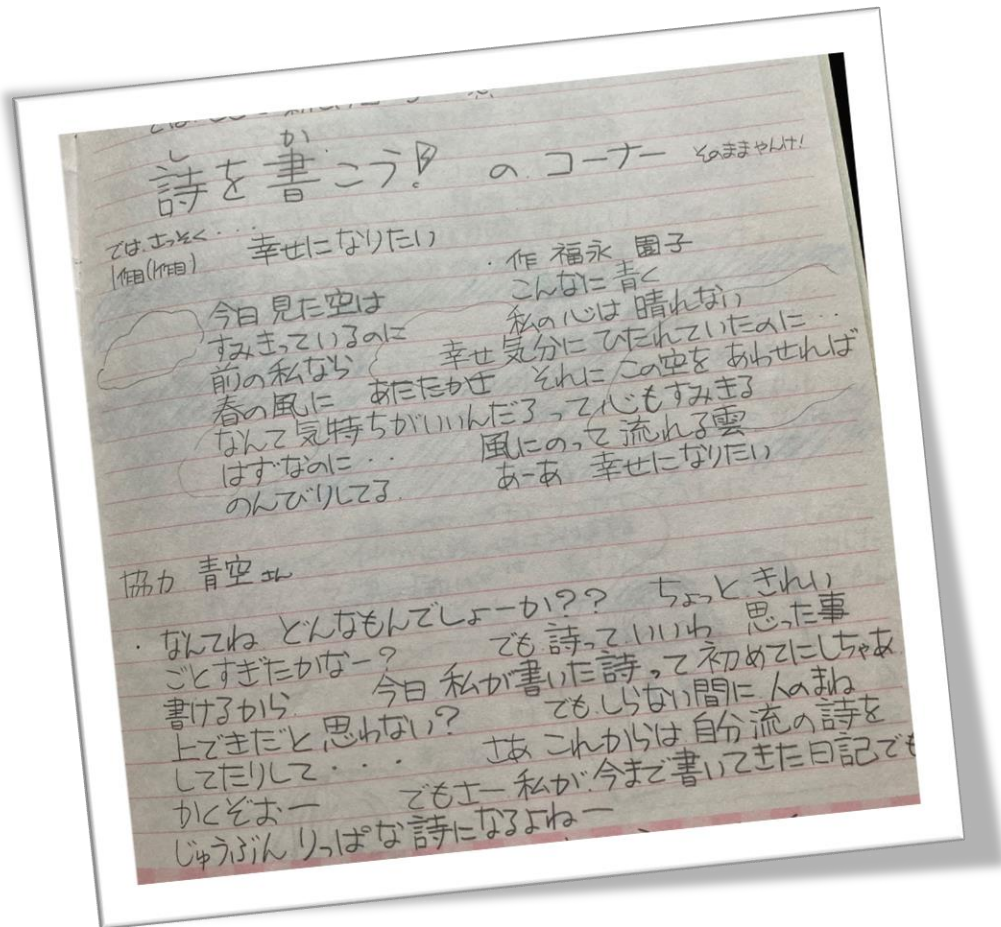 し か
詩を書こう! の コーナー そのままやんけ!
では、さっそく・・・
1作目(1作目) 幸せになりたい
・作 福永 園子
今日見た空は こんなに青く
すみきっているのに 私の心は晴れない
前の私なら 幸せ気分にひたれていたのに・・
春の風に あたたかさ それに この空を あわせれば
なんて気持ちがいいんだろって心もすみきる
はずなのに・・ 風にのって流れる雲
のんびりしてる. あーあ 幸せになりたい
協力 青空さん
・なんてね どんなもんでしょーか?? ちょっと きれい
ごとすぎたかなー? でも詩って いいわ 思った事
書けるから. 今日 私が書いた詩って初めてにしちゃあ
上できだと思わない? でも しらない間に 人のまね
してたりして・・・ さあ これからは 自分流の詩を
かくぞおー でもさー 私が 今まで書いてきた日記でも
じゅうぶん りっぱな詩になるよねー